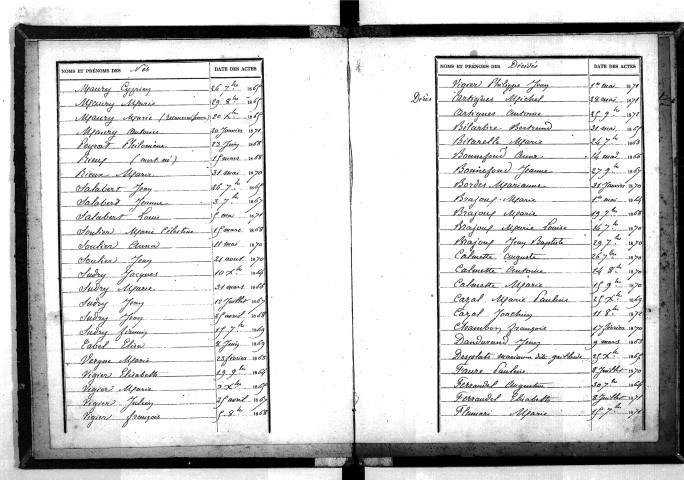 NOMS ET PRÉNOMS DES Nés DATE DES ACTES
Maury Cyprien 26 7bre
Maury Marie 29 8bre
Maury Marie 20 Xbre
Maury Antoine 20 Janvier 1871
Payrat Philomène 23 Juin 1868
Rieux (mort né) 15 mars 1868
Rieux Marie 31 mai 1870
Salabert Jean 26 7bre
Salabert Jeanne 3 7bre
Salabert Louis 5 mai 1871
Soulier Marie Célestine 15 mars 1868
Soulier Anna 11 mai 1870
Soulier Jean 21 aout 1870
Sudry Jacques 10 Xbre
Sudry Marie 31 mars
Sudry Jean 12 Juillet
Sudry Jean 25 avril 1868
Sudry Firmin 17 7bre 1869
Tabel 8 Juin 1869
Vergne Marie 23 février 1868
Vigier Elisabeth 29 9bre
Vigier Marie Xbre
Vigier Julien 25 avril
Vigier François 5 8bre 1868
NOMS ET PRÉNOMS DES Décédés DATE DES ACTES
Vigier Philippe Jean 1er mai 1871
Décès Artigues Michel 28 mai 1871
Artigues Antoine 25 9bre
Bertrand 31 mai
Bitarelle Marie 24 7bre 1868
Bonnefond Anne 14 mai 1868
Bonnefond Jeanne 27 9bre
Bordes Marianne 31 Janvier 1870
Brajous Marie 1er mai
Brajous Marie 19 7bre 1868
Brajous Marie Louise 14 7bre 1870
Brajous Jean Baptiste 29 7bre 1870
Calmette Auguste 26 7bre 1870
Calmette Antoine 24 8bre 1870
Calmette Marie 15 9bre 1870
Cazol Marie Pauline 25 Xbre
Cazol Joachim 11 8bre
Chambon François 17 février 1870
Jean 9 mars 1868
Desplats dite 25 Xbre
Faure Pauline 8 Juillet 1870
Ferrandel Augustin 30 7bre
Ferrandel Elisabeth 8 Juillet 1871
Marie 15 7bre 1871